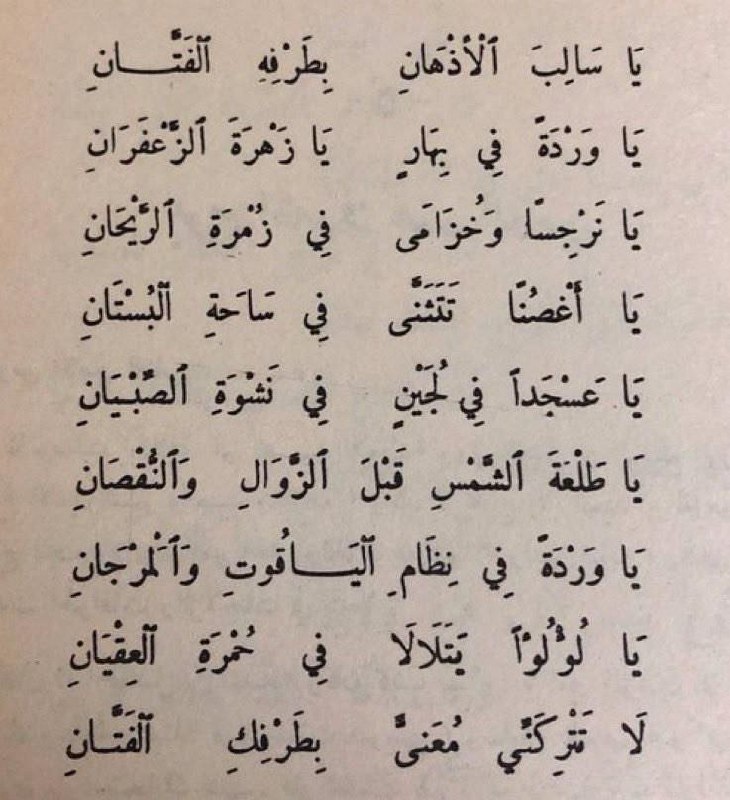 يَا سَالِبَ ٱلْأَذْهَانِ بِطَرْفِهِ ٱلْفَتَّـــانِ
يَا وَرْدَةً فِي بِهَارٍ يَا زَهْرَةَ ٱلزَّعْفَرَانِ
يَا نَرْجِسًا وَخُزَامَى فِي زُمْرَةِ ٱلرَّيْحَانِ
يَا أَغْصُنًا تَتَثَنَّى فِي سَاحَةِ ٱلْبُسْتَانِ
يَا عَسْجَداً فِي لُجَيْنٍ فِي نَشْوَةِ ٱلصِّبْيَانِ
يَا طَلْعَةَ ٱلشَّمْسِ قَبْلَ ٱلزَّوَالِ وَٱلنُّقْصَانِ
يَا وَرْدَةً فِي نِظَامِ ٱلْيَـــاقُوتِ وَٱلْمَرْجَانِ
يَا لُؤْلُؤًا يَتَلَالَا فِي حُمْرَةِ ٱلْعِقْيَانِ
لَا تَتْرِكَنِّي مُعَنىًّ بِطَرْفِكِ ٱلْفَتَّـانِ